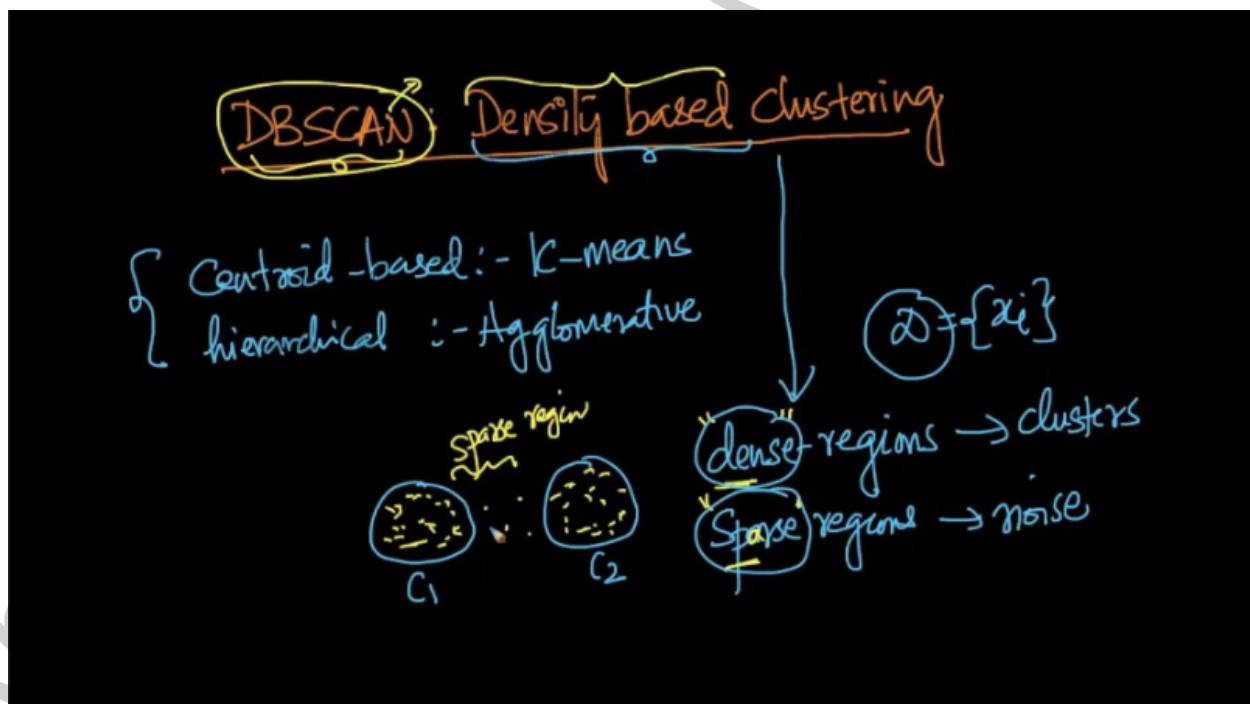 DBSCAN: Density based Clustering
Centroid-based:- K-means
hierarchical :- Agglomerative
D={xi}
dense-regions → clusters
Sparse regions → noise
sparse regin
C1
C2